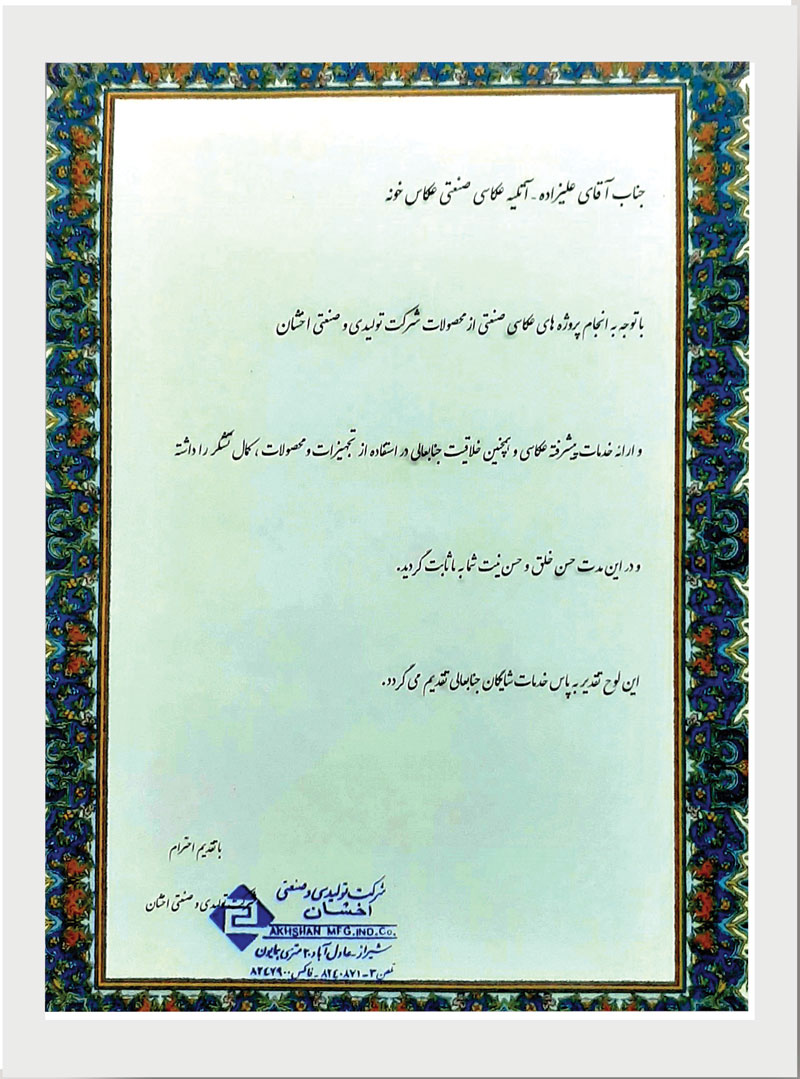 جناب آقای علیزاده - آتلیه عکاسی صنعتی عکاس خونه
با توجه به انجام پروژه های عکاسی صنعتی از محصولات شرکت تولیدی و صنعتی اخشان
و ارائه خدمات پیشرفته عکاسی و همچنین خلاقیت جنابعالی در استفاده از تجهیزات و محصولات ، کمال تشکر را داشته
و در این مدت حسن خلق و حسن نیت شما به ما ثابت گردید.
این لوح تقدیر به پاس خدمات شایگان جنابعالی تقدیم می گردد.
با تقدیم احترام
شرکت تولیدی و صنعتی اخشان
شرکت تولیدی و صنعتی
اخشان
AKHSHAN MFG.IND.Co.
شیراز - عادل آباد ۲۰ متری همایون
تلفن ۳ - ۸۲۴۰۸۷۱ - فاکس ۸۲۴۷۹۰۰